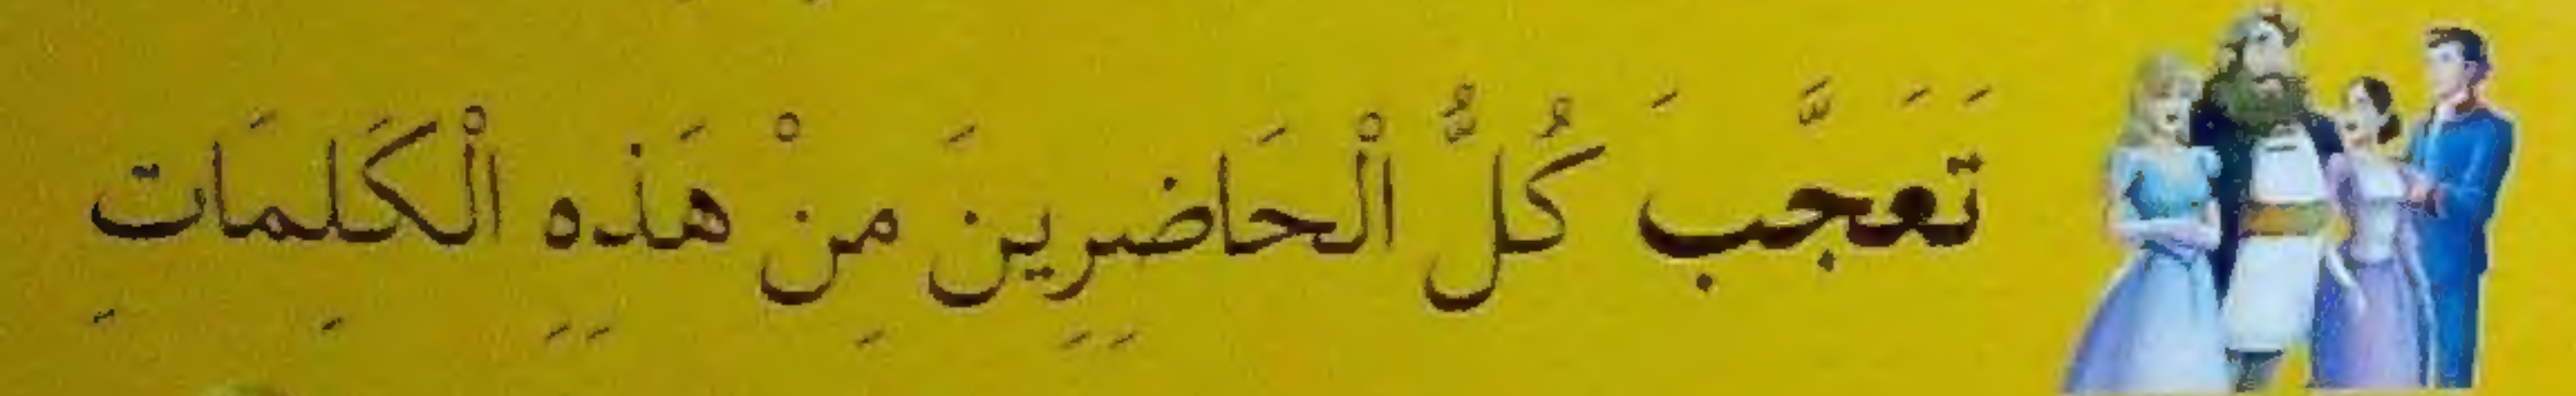 تَعَجَّبَ كُلُّ الْحَاضِرِينَ مِنْ هَذِهِ الْكَلِمَاتِ